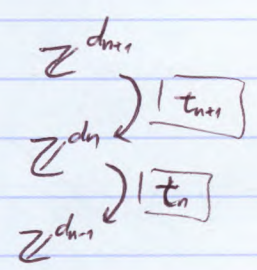 ℤ^{d_{n+1}}
t_{n+1}
ℤ^{d_n}
t_n
ℤ^{d_{n-1}}